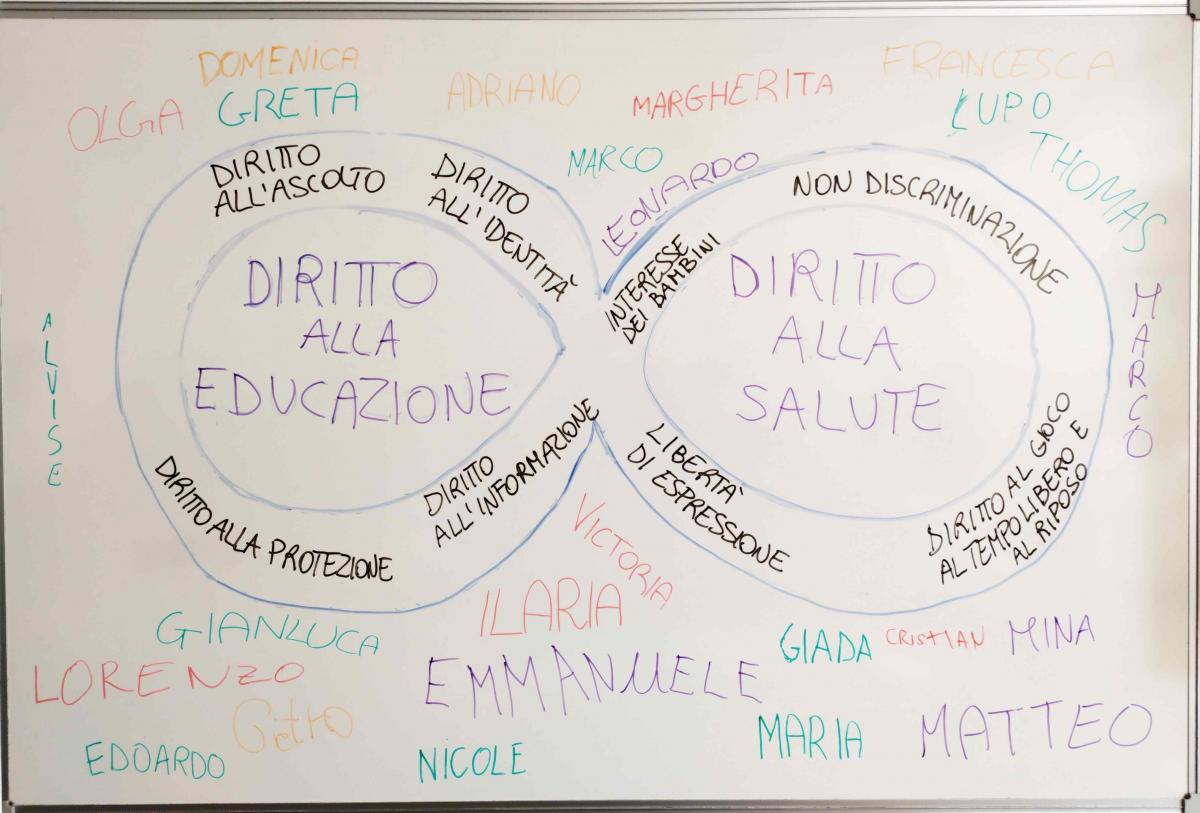 DOMENICA
OLGA
GRETA
ADRIANO
MARGHERITA
FRANCESCA
LUPO
THOMAS
MARCO
LEONARDO
DIRITTO
ALL'ASCOLTO
DIRITTO
ALL'IDENTITÀ
INTERESSE
DEI BAMBINI
NON DISCRIMINAZIONE
DIRITTO
ALLA
EDUCAZIONE
DIRITTO
ALLA
SALUTE
ALVISE
MARCO
DIRITTO ALLA PROTEZIONE
DIRITTO
ALL'INFORMAZIONE
LIBERTÀ
DI ESPRESSIONE
DIRITTO AL GIOCO
AL TEMPO LIBERO E
AL RIPOSO
VICTORIA
ILARIA
GIANLUCA
GIADA
CRISTIAN
MINA
LORENZO
EMMANUELE
EDOARDO
NICOLE
MARIA
MATTEO